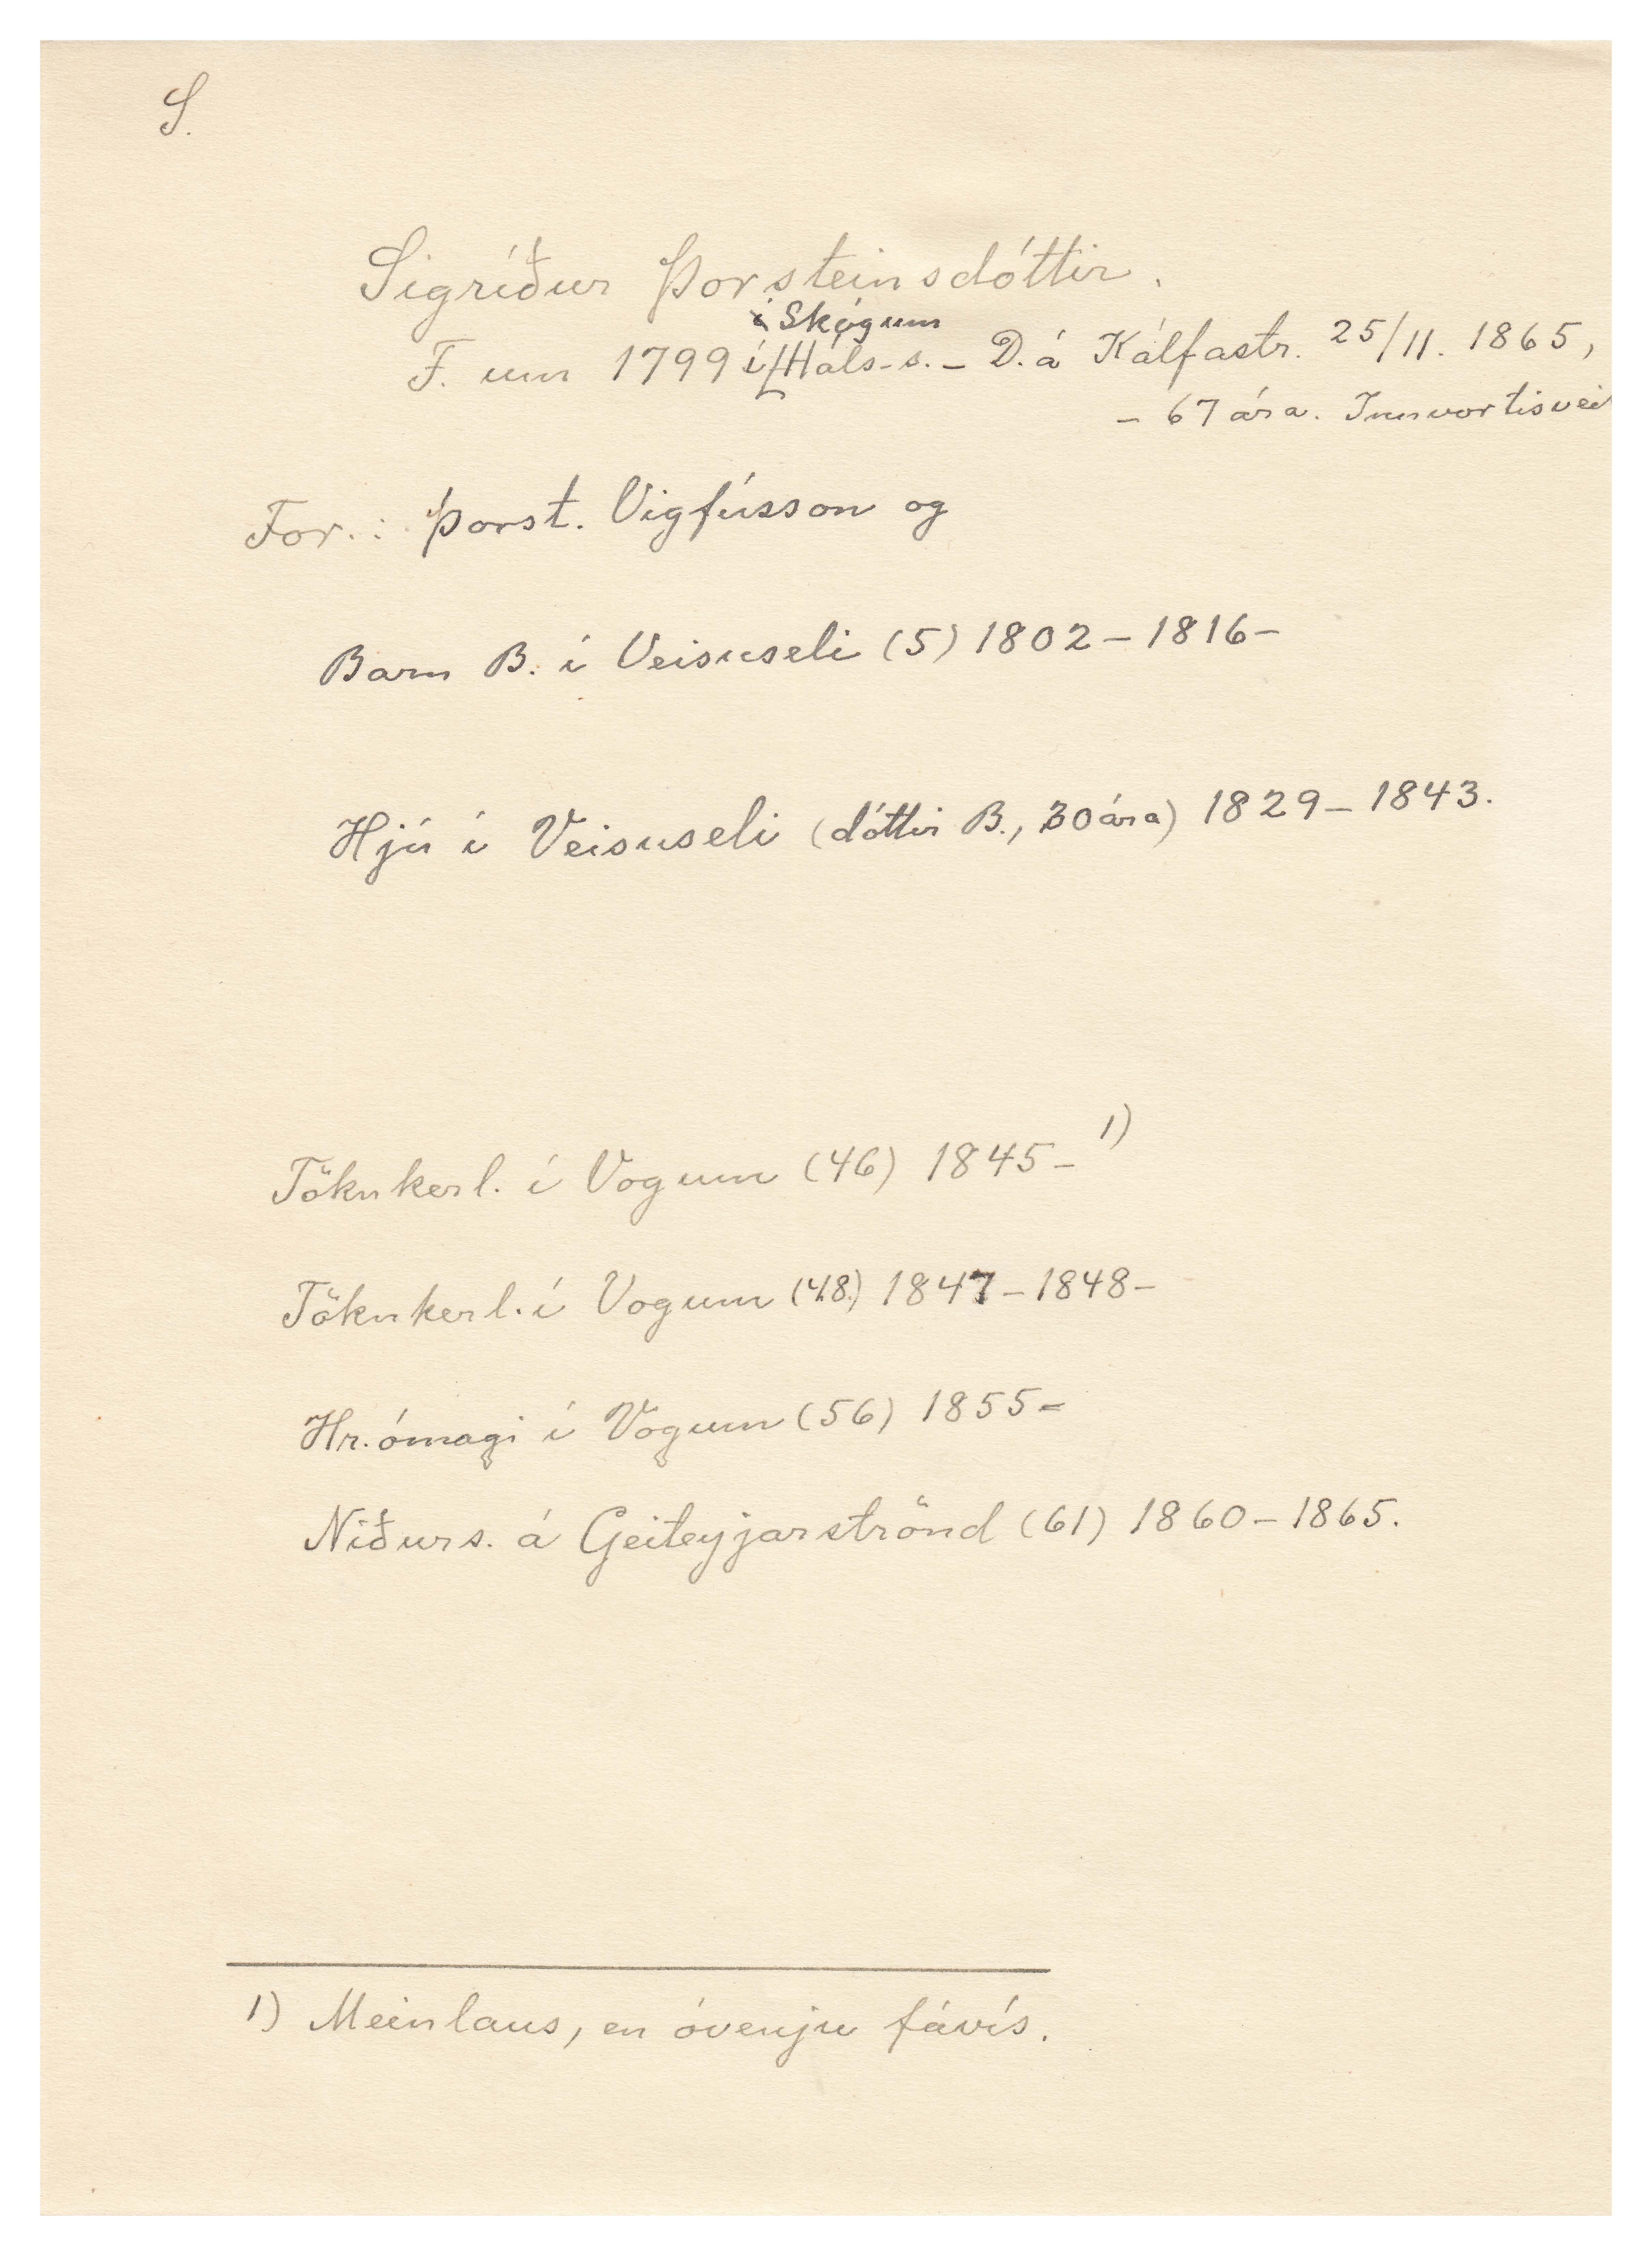 S.
Sigríður Þorsteinsdóttir.
í Skógum
F. um 1799 í Háls-s. – D. á Kálfastr. 25/11. 1865,
– 67 ára. Innvortisvei
For.: Þorst. Vigfússon og
Barn B. í Veisuseli (5) 1802 – 1816 –
Hjú í Veisuseli (dóttir B., 30 ára) 1829 – 1843.
Tökukerl. í Vogum (46) 1845 – 1)
Tökukerl. í Vogum (48) 1847 – 1848 –
Hr. ómagi í Vogum (56) 1855 –
Niðurs. á Geiteyjarströnd (61) 1860 – 1865.
1) Meinlaus, en óvenju fávís.